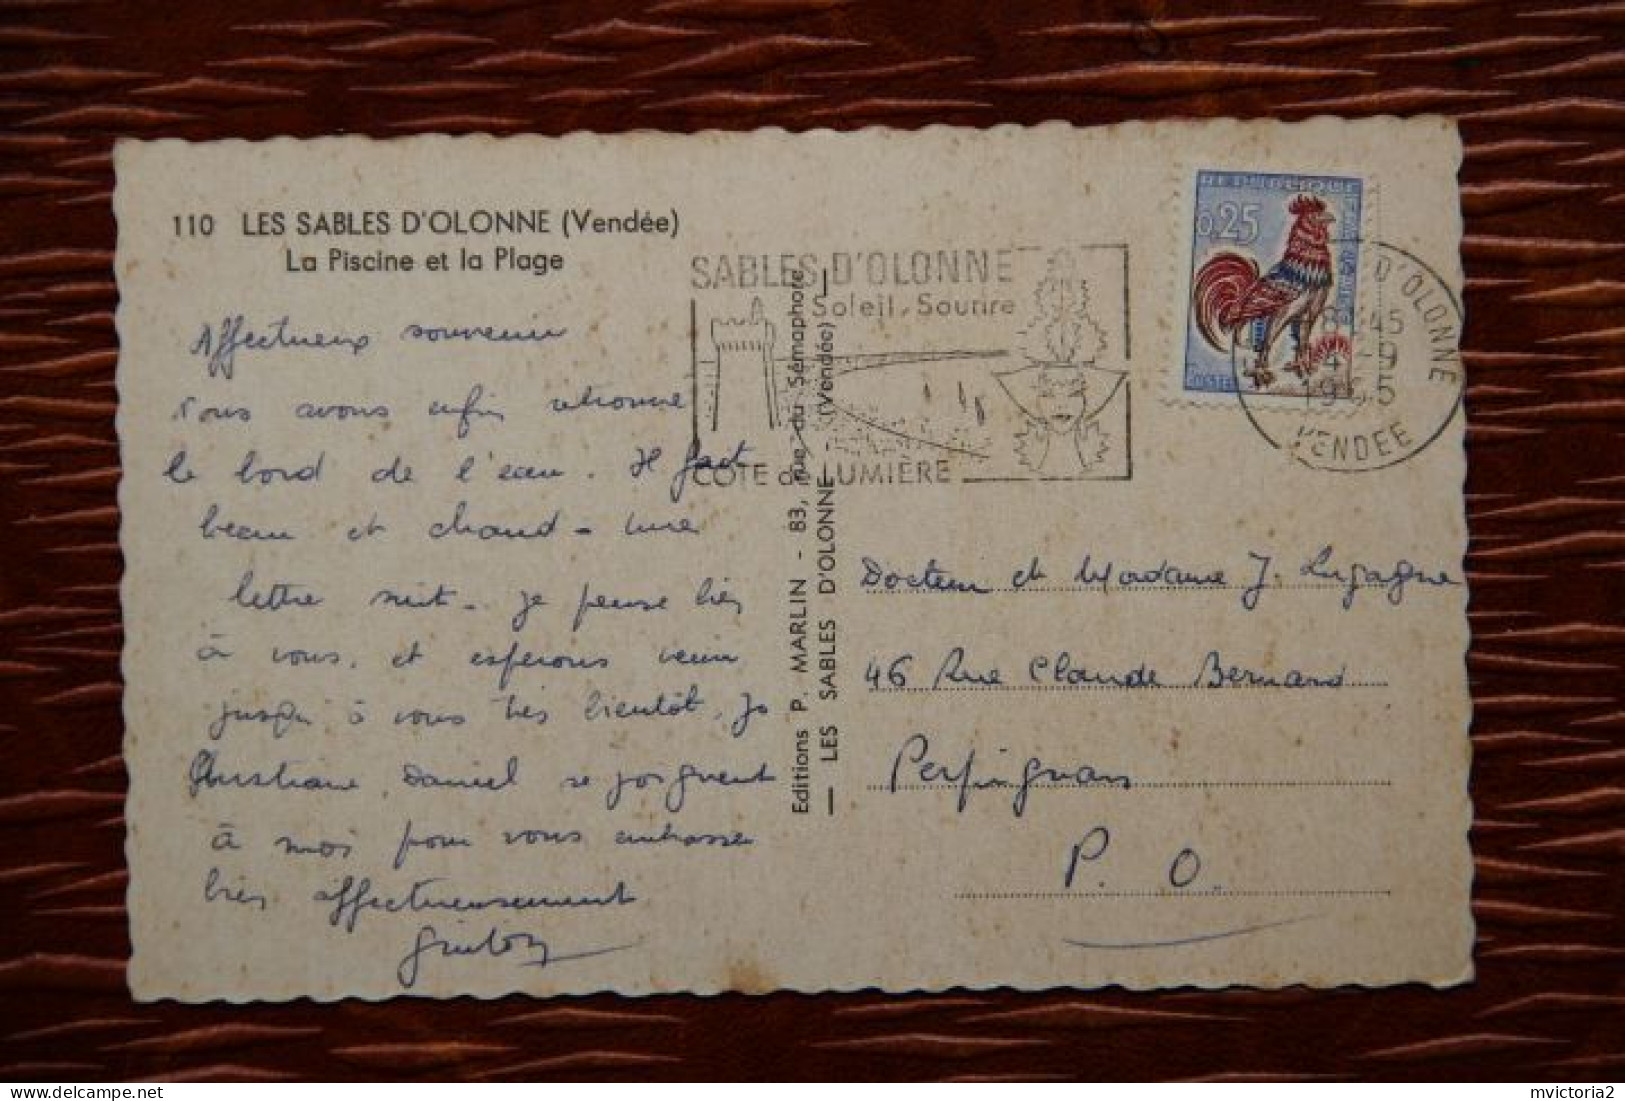 110 LES SABLES D'OLONNE (Vendée)
La Piscine et la Plage
Affectueux souvenir
Nous avons enfin retrouvé
le bord de l'eau. Il fait
beau et chaud - une
lettre suit. Je pense bien
à vous, et espérons venir
jusqu'à vous très bientôt. Jo
Christiane Daniel se joignent
à moi pour vous embrasser
bien affectueusement
Editions P. MARLIN - 83, rue du Sémaphore
— LES SABLES D'OLONNE (Vendée) —
SABLES D'OLONNE
Soleil, Sourire
COTE de LUMIÈRE
REPUBLIQUE FRANÇAISE
0,25
POSTES
D'OLONNE
18 H 45
4 - 9
1965
VENDEE
Docteur et Madame J. Lagagne
46 Rue Claude Bernard
Perpignan
P. O.
mvictoria2